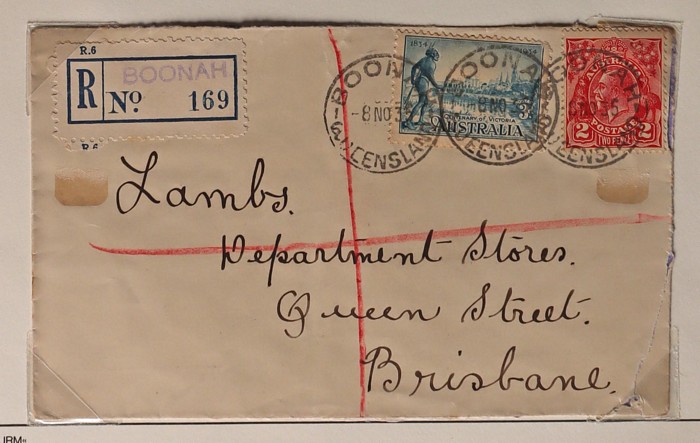 R.6
R BOONAH
No 169
R.6
1834 1934
CENTENARY OF VICTORIA
3d
AUSTRALIA
AUSTRALIA
POSTAGE
2 TWO PENCE 2
BOONAH
-8 NO 35
QUEENSLAND
BOONAH
8 NO 35
QUEENSLAND
BOONAH
QUEENSLAND
Lambs.
Department Stores.
Queen Street.
Brisbane.